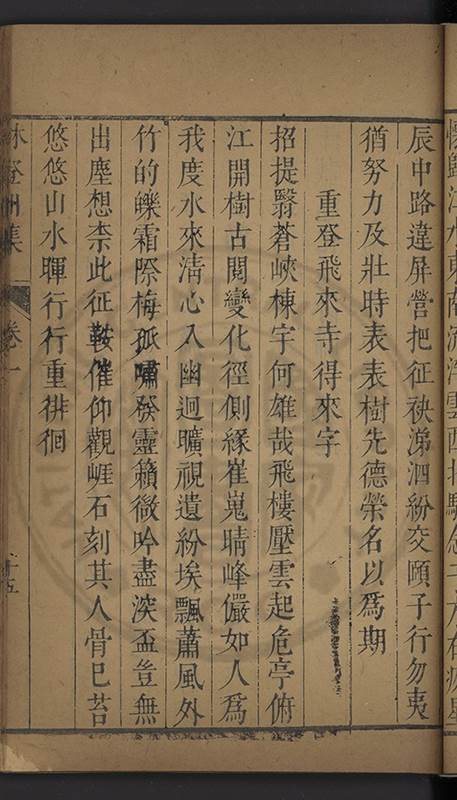 辰中路違屏營把征袂涕泗紛交頤子行勿夷
猶努力及壯時表表樹先德榮名以爲期
重登飛來寺得來字
招提翳蒼峽棟宇何雄哉飛樓壓雲起危亭俯
江開樹古閱變化徑側緣崔嵬晴峰儼如人爲
我度水來淸心入幽迥曠視遺紛埃飄蕭風外
竹的皪霜際梅孤嘯發靈籟微吟盡深盃豈無
出塵想柰此征鞍催仰觀崕石刻其人骨巳苔
悠悠山水暉行行重徘徊
林登州集
卷一
十五